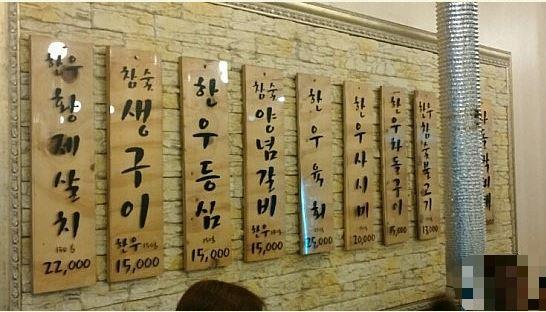 한우
황제살치
150g
22,000
참숯
생구이
한우 150g
15,000
한우등심
150g
15,000
참숯
양념갈비
한우
15,000
한우육회
25,000
한우사시미
20,000
한우차돌구이
15,000
한우
참숯불고기
13,000